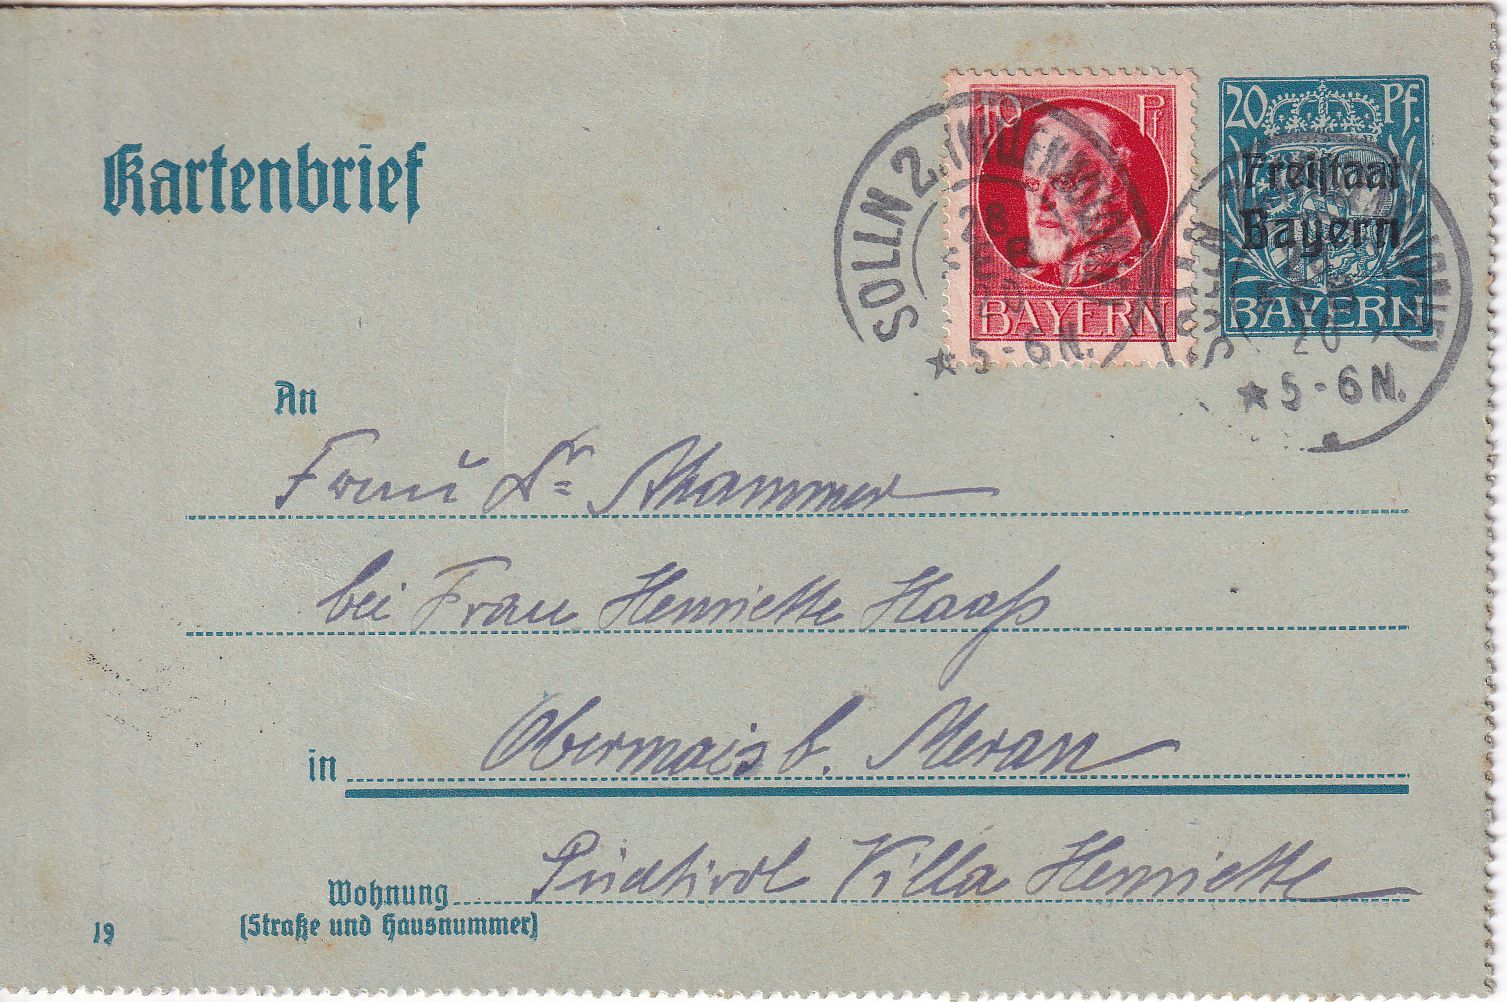 Kartenbrief
10 Pf
BAYERN
20 Pf.
Freistaat
Bayern
BAYERN
SOLLN 2.
28
★ 5-6N.
SOLLN
20
★ 5-6N.
An
Frau Dr
bei Frau Henriette Haaß
in Obermais b. Meran
Südtirol Villa Henriette
Wohnung
(Straße und Hausnummer)
19